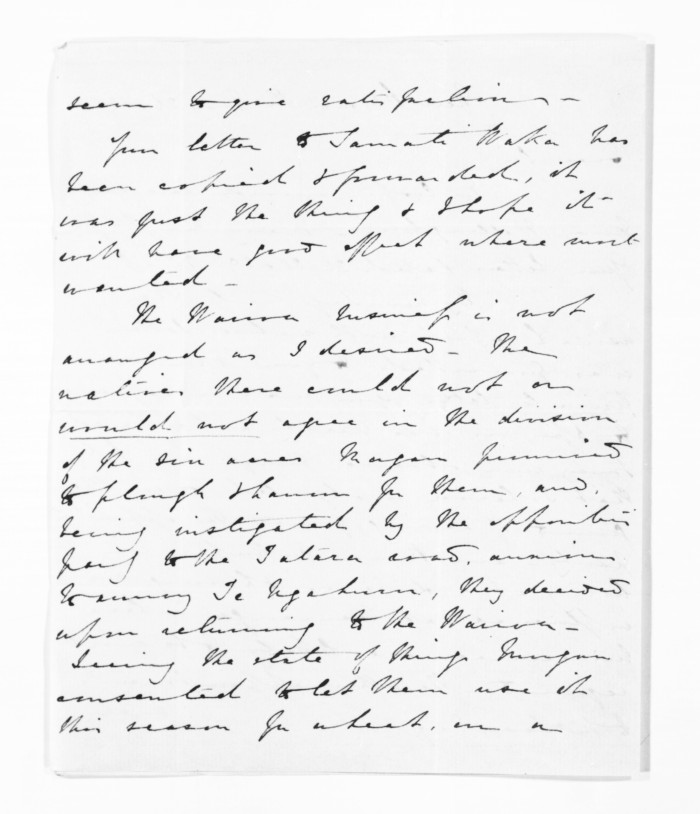 seem to give satisfaction –
Your letter to Tamati Waka has
been copied & forwarded, it
was just the thing & I hope it
will have good effect where most
wanted –
The Wairoa business is not
arranged as I desired – The
natives there could not or
would not agree in the division
of the six acres Morgan promised
to plough & harrow for them, and,
being instigated by the opposition
party to the Tatara road, anxious
to annoy Te Ngahuru, they decided
upon returning to the Wairoa –
Seeing the state of things Morgan
consented to let them use it
this season for wheat, on a